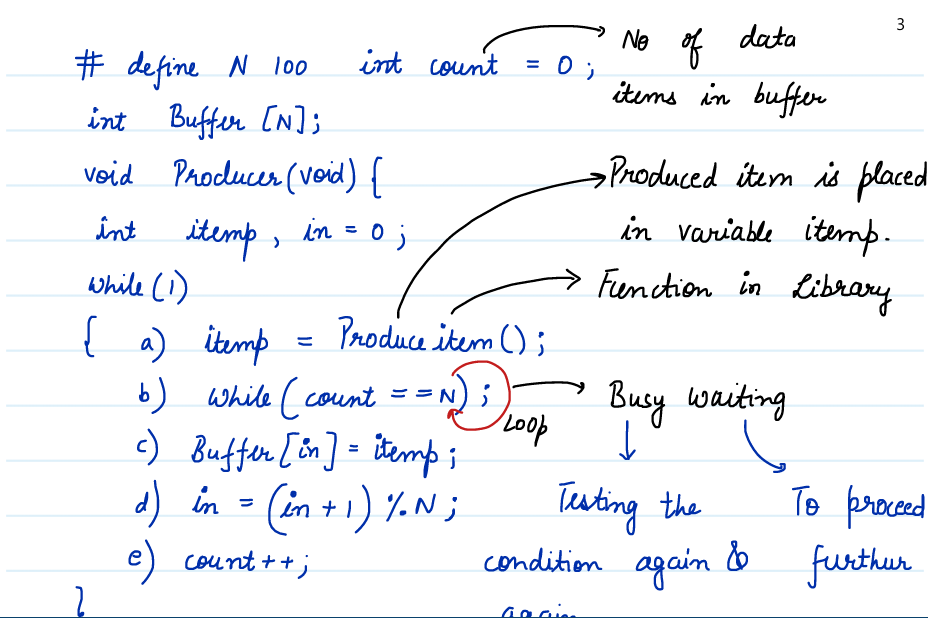 3
# define N 100 int count = 0 ; No of data
items in buffer
int Buffer [N];
void Producer(void) { Produced item is placed
int itemp , in = 0 ; in variable itemp.
while (1) Function in Library
{ a) itemp = Produce item () ;
b) while ( count == N) ; Loop Busy waiting
c) Buffer [in] = itemp ;
d) in = (in + 1) % N ; Testing the To proceed
e) count ++ ; condition again & furthur
} again